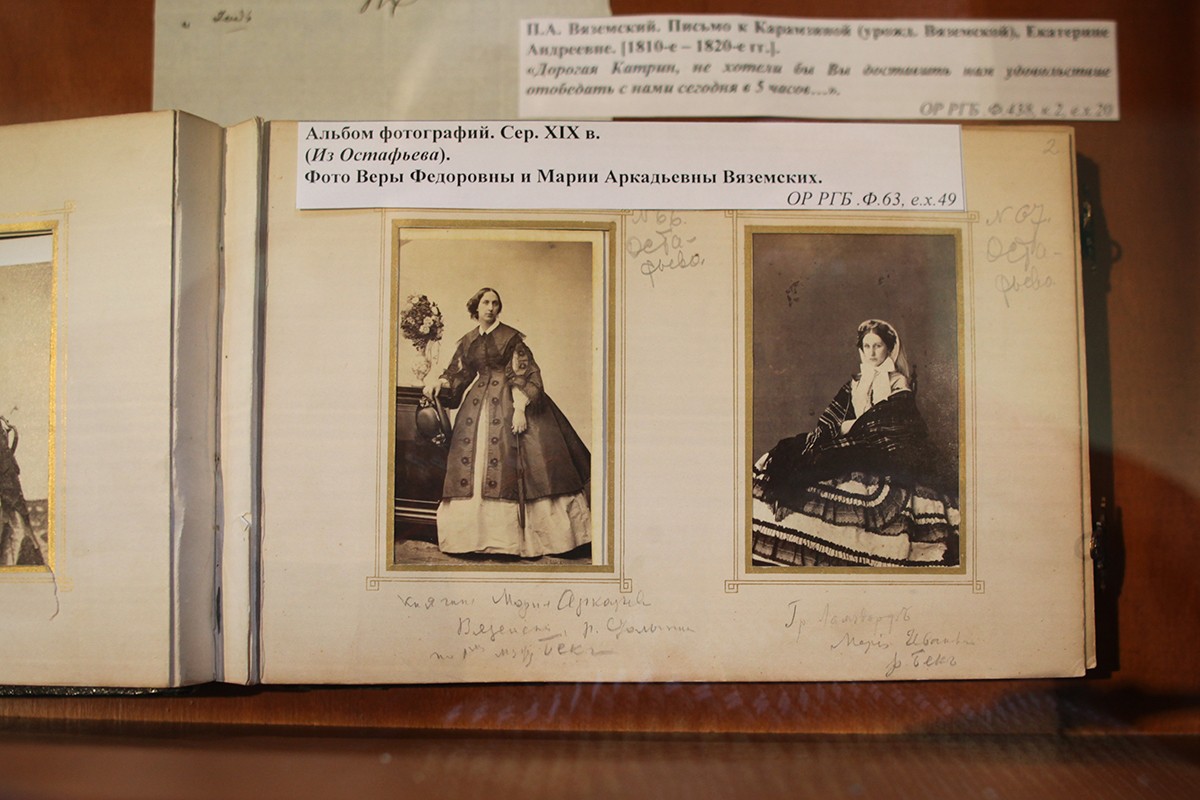 П.А. Вяземский. Письмо к Карамзиной (урожд. Вяземской), Екатерине
Андреевне. [1810-е – 1820-е гг.].
«Дорогая Катрин, не хотели бы Вы доставить нам удовольствие
отобедать с нами сегодня в 5 часов…».
ОР РГБ. Ф.438, к.2, е.х.20
Альбом фотографий. Сер. XIX в.
(Из Остафьева).
Фото Веры Федоровны и Марии Аркадьевны Вяземских.
ОР РГБ .Ф.63, е.х.49
2
N 66.
Оста-
фьево
N 67.
Оста-
фьево
Мария
Бекъ
Гр
Марія
р Бекъ